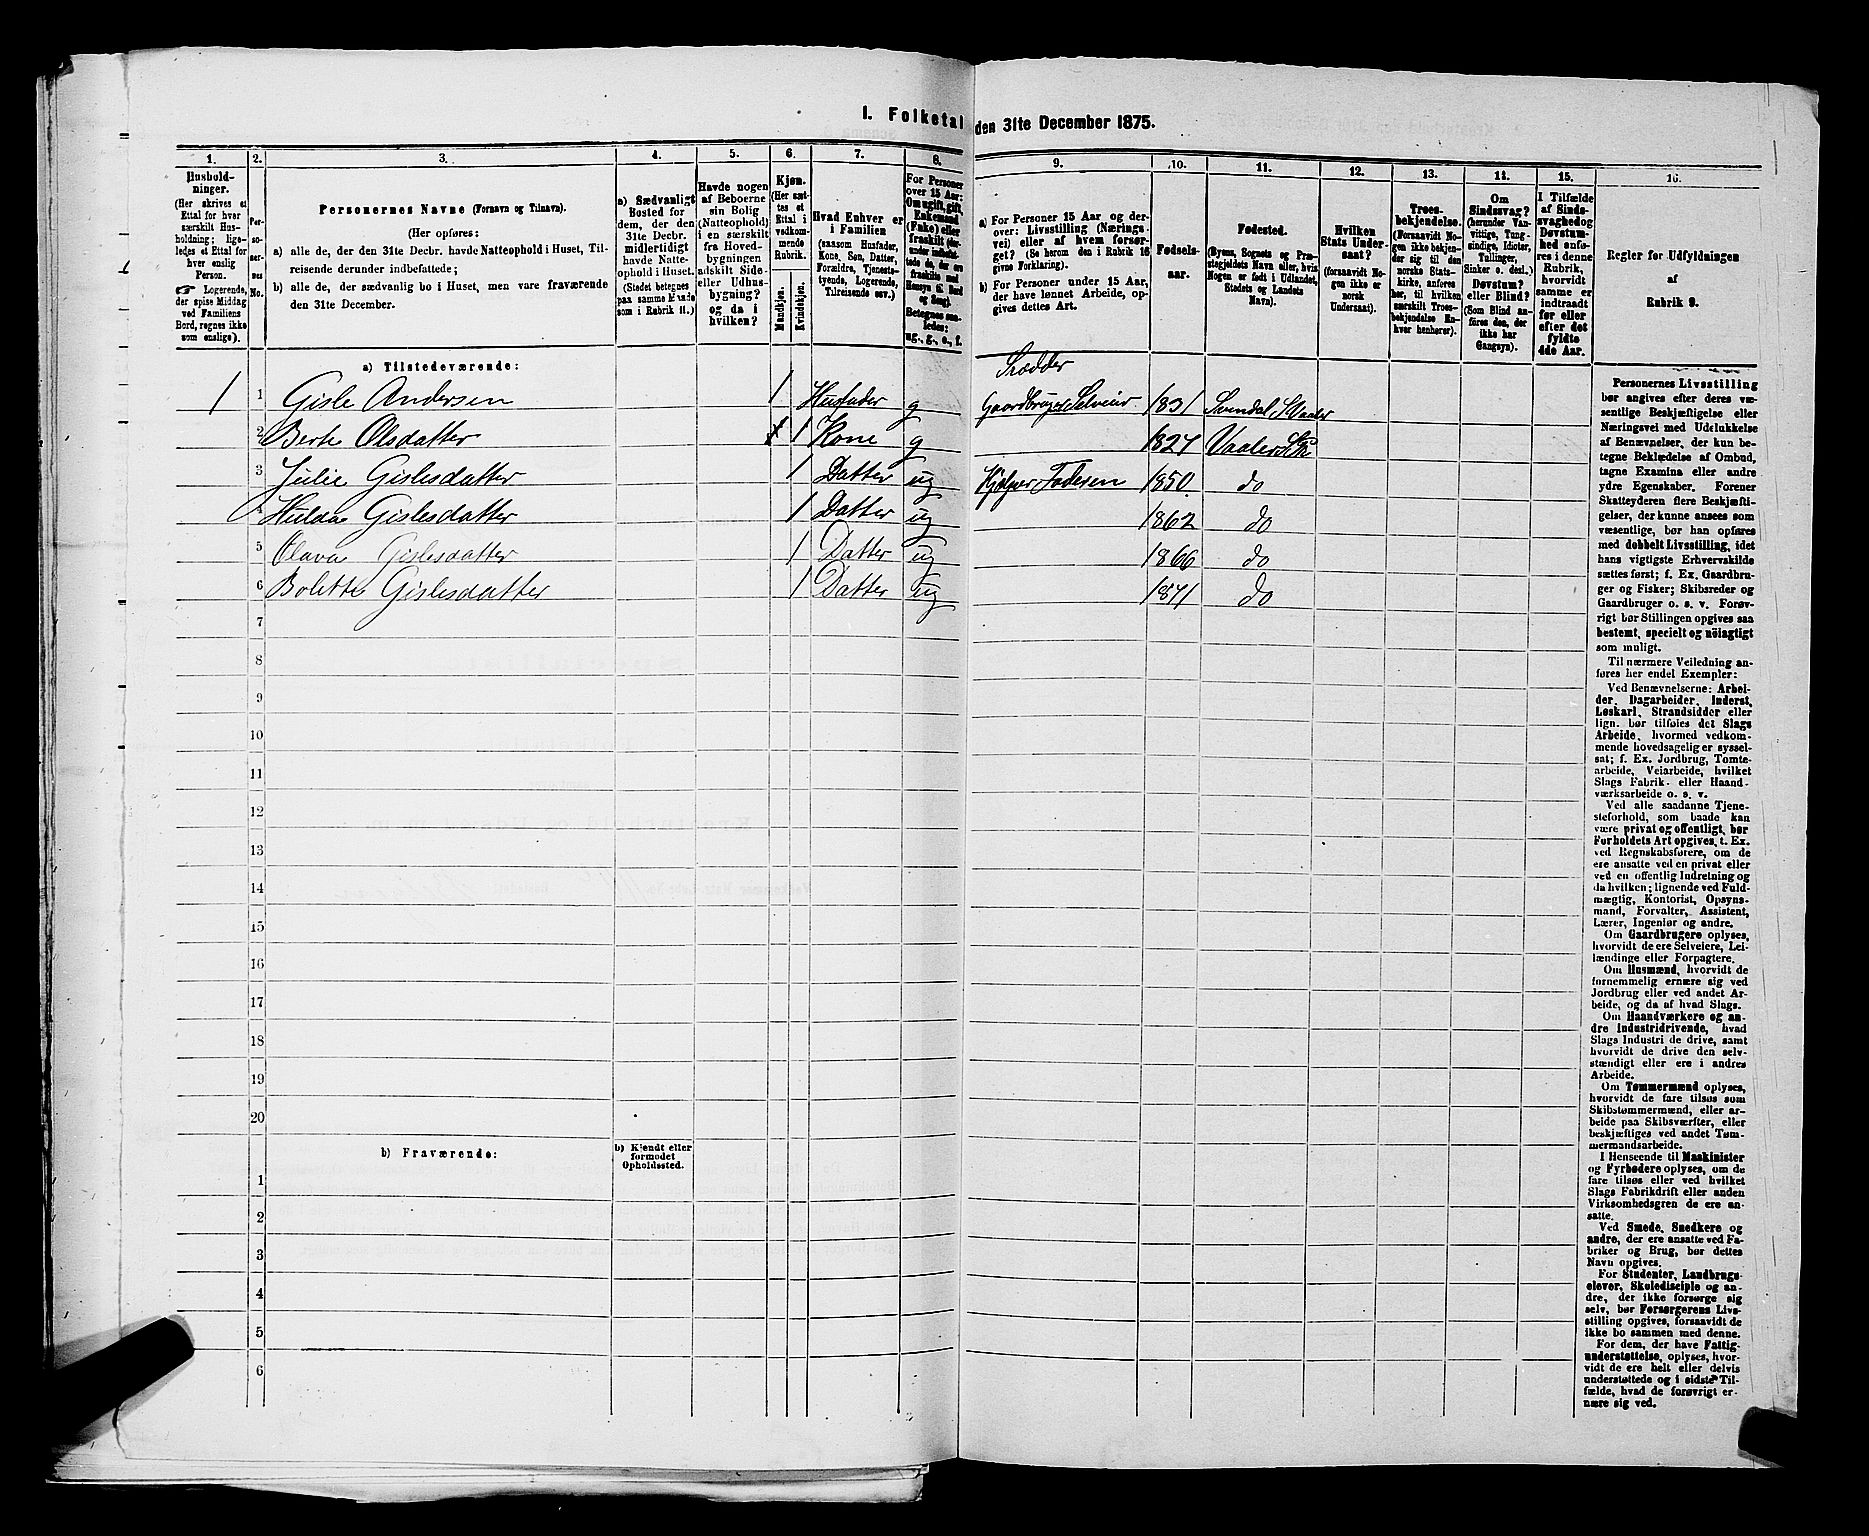 I. Folketal den 31te December 1875.
1. 2. 3. 4. 5. 6. 7. 8. 9. 10. 11. 12. 13. 14. 15. 16.
Hushold-
ninger.
(Her skrives et
Ettal for hver
særskilt Hus-
holdning; lige-
ledes et Ettal for
hver enslig
Person.
☛ Logerende,
der spise Middag
ved Familiens
Bord, regnes ikke
som enslige).
Per-
so-
ner-
nes
No.
Personernes Navne (Fornavn og Tilnavn).
(Her opføres:
a) alle de, der den 31te Decbr. havde Natteophold i Huset, Til-
reisende derunder indbefattede;
b) alle de, der sædvanlig bo i Huset, men vare fraværende
den 31te December.
a) Sædvanligt
Bosted for
dem, der den
31te Decbr.
midlertidigt
havde Natte-
ophold i Huset.
(Stedet betegnes
paa samme Maade
som i Rubrik 11.)
Havde nogen
af Beboerne
sin Bolig
(Natteophold)
i en særskilt
fra Hoved-
bygningen
adskilt Side-
eller Udhus-
bygning?
og da i
hvilken?
Kjøn.
(Her sæt-
tes et
Ettal i
vedkom-
mende
Rubrik.
Mandkjøn.
Kvindekjøn.
Hvad Enhver er
i Familien
(saasom Husfader,
Kone, Søn, Datter,
Forældre, Tjenest-
tyende, Logerende,
Tilreisende osv.)
For Personer
over 15 Aar:
Om ugift, gift,
Enkemand
(Enke) eller
fraskilt (der-
under indbefat-
tede de, der ere
fraskilte med
Hensyn til Bord
og Seng).
Betegnes saa-
ledes:
ug., g., e., f.
a) For Personer 15 Aar og der-
over: Livsstilling (Nærings-
vei) eller af hvem forsør-
get? (Se herom den i Rubrik 16
givne Forklaring).
b) For Personer under 15 Aar,
der have lønnet Arbeide, op-
gives dettes Art.
Fødsels-
aar.
Fødested.
(Byens, Sognets og Præ-
stegjeldets Navn eller, hvis
Nogen er født i Udlandet,
Stedets og Landets
Navn).
Hvilken
Stats Under-
saat?
(forsaavidt No-
gen ikke er
norsk
Undersaat).
Troes-
bekjendelse.
(Forsaavidt No-
gen ikke bekjen-
der sig til den
norske Stats-
kirke, anføres
her, til hvilken
særskilt Troes-
bekjendelse En-
hver henhører).
Om
Sindssvag?
(herunder Van-
vittige, Tung-
sindige, Idioter,
Tullinger,
Sinker o. desl.)
Døvstum?
eller Blind?
(Som Blind an-
føres den, der
ikke har
Gangsyn).
I Tilfælde
af Sinds-
svaghed og
Døvstum-
hed anfø-
res i denne
Rubrik,
hvorvidt
samme er
indtraadt
før eller
efter det
fyldte
4de Aar.
Regler for Udfyldningen
af
Rubrik 9.
a) Tilstedeværende:
Skrædder
1 1 Gisle Andersen 1 Husfader g Gaardbruger Selveier 1831 Svendal, Vaaler
2 Berte Olsdatter 1 Kone g 1827 Vaaler
3 Julie Gislesdatter 1 Datter ug Hjelper Faderen 1850 do
4 Hulda Gislesdatter 1 Datter ug 1862 do
5 Olava Gislesdatter 1 Datter ug 1866 do
6 Bolette Gislesdatter 1 Datter ug 1871 do
7
8
9
10
11
12
13
14
15
16
17
18
19
20
b) Fraværende:
b) Kjendt eller
formodet
Opholdssted.
1
2
3
4
5
6
Personernes Livsstilling
bør angives efter deres væ-
sentlige Beskjæftigelse eller
Næringsvei med Udelukkelse
af Benævnelser, der kun be-
tegne Beklædelse af Ombud,
tagne Examina eller andre
ydre Egenskaber. Forener
Skatteyderen flere Beskjæfti-
gelser, der kunne ansees som
væsentlige, bør han opføres
med dobbelt Livsstilling, idet
hans vigtigste Erhvervskilde
sættes først; f. Ex. Gaardbru-
ger og Fisker; Skibsreder og
Gaardbruger o. s. v. Forøv-
rigt bør Stillingen opgives saa
bestemt, specielt og nöiagtigt
som muligt.
Til nærmere Veiledning an-
føres her endel Exempler:
Ved Benævnelserne: Arbei-
der, Dagarbeider, Inderst,
Løskarl, Strandsidder eller
lign. bør tilføies det Slags
Arbeide, hvormed vedkom-
mende hovedsagelig er syssel-
sat; f. Ex. Jordbrug, Tomte-
arbeide, Veiarbeide, hvilket
Slags Fabrik- eller Haand-
værksarbeide o. s. v.
Ved alle saadanne Tjene-
steforhold, som baade kan
være privat og offentligt, bør
Forholdets Art opgives, t. Ex.
ved Regnskabsførere, om de
ere ansatte ved en privat eller
ved en offentlig Indretning og
da hvilken; lignende ved Fuld-
mægtig, Kontorist, Opsyns-
mand, Forvalter, Assistent,
Lærer, Ingeniør og andre.
Om Gaardbrugere oplyses,
hvorvidt de ere Selveiere, Lei-
lændinge eller Forpagtere.
Om Husmænd, hvorvidt de
fornemmelig ernære sig ved
Jordbrug eller ved andet Ar-
beide, og da af hvad Slags.
Om Haandværkere og an-
dre Industridrivende, hvad
Slags Industri de drive, samt
hvorvidt de drive den selv-
stændigt eller ere i andres
Arbeide.
Om Tømmermænd oplyses,
hvorvidt de fare tilsøs som
Skibstømmermænd, eller ar-
beide paa Skibsværfter, eller
beskjæftiges ved andet Tøm-
mermandsarbeide.
I Henseende til Maskinister
og Fyrbødere oplyses, om de
fare tilsøs eller ved hvilket
Slags Fabrikdrift eller anden
Virksomhedsgren de ere an-
satte.
Ved Smede, Snedkere og
andre, der ere ansatte ved Fa-
briker og Brug, bør dettes
Navn opgives.
For Studenter, Landbrugs-
elever, Skoledisciple og an-
dre, der ikke forsørge sig
selv, bør Forsørgerens Livs-
stilling opgives, forsaavidt de
ikke bo sammen med denne.
For dem, der have Fattig-
understøttelse, oplyses, hvor-
vidt de ere helt eller delvis
understøttede og i sidste Til-
fælde, hvad de forøvrigt er-
nære sig ved.